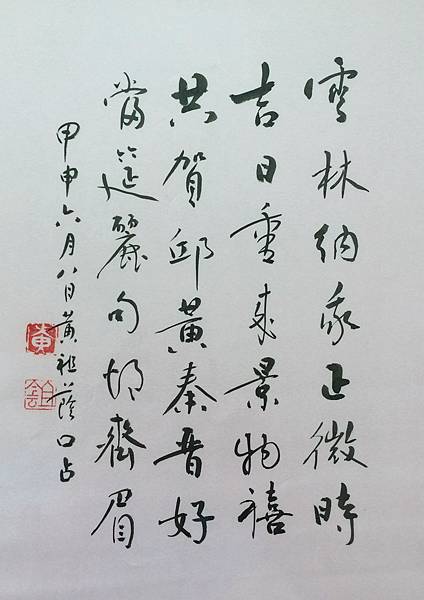 雲林納正微時
吉日重來景物禧
共賀邱黃秦晉好
當筵麗句齊眉
甲申六月八日黃祖蔭口占